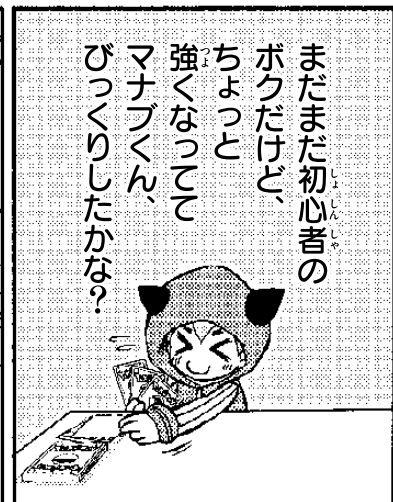 まだまだ初心者の
ボクだけど、
ちょっと
強くなってて
マナブくん、
びっくりしたかな?